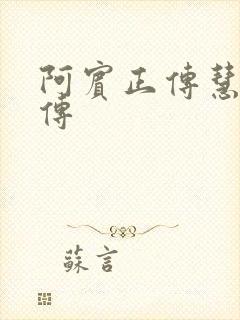 阿賓正傳慧
傳
蘇言